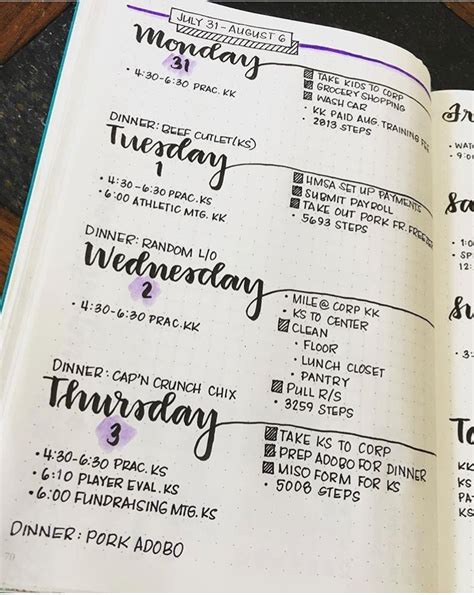 JULY 31 - AUGUST 6
Monday
31
• 4:30-6:30 PRAC. KK
TAKE KIDS TO CORP
GROCERY SHOPPING
WASH CAR
• KK PAID AUG. TRAINING
• 2813 STEPS
DINNER: BEEF CUTLET(KS)
Tuesday
1
• 4:30-6:30 PRAC. KS
• 6:00 ATHLETIC MTG. KK
HMSA SET UP PAYMENTS
SUBMIT PAYROLL
TAKE OUT PORK FR. FREEZER
• 5693 STEPS
DINNER: RANDOM L/O
Wednesday
2
• 4:30-6:30 PRAC. KK
• MILE @ CORP KK
• KS TO CENTER
CLEAN
• FLOOR
• LUNCH CLOSET
• PANTRY
PULL R/S
• 3259 STEPS
DINNER: CAP'N CRUNCH CHIX
Thursday
3
• 4:30-6:30 PRAC. KS
• 6:10 PLAYER EVAL. KS
• 6:00 FUNDRAISING MTG. KS
TAKE KS TO CORP
PREP ADOBO FOR DINNER
MISO FORM FOR KS
• 5008 STEPS
DINNER: PORK ADOBO
70
Fr
• WAT
• 9:0
Sa
• 1:0
• SP
12:
Su
To
KK
KS
PA
KS